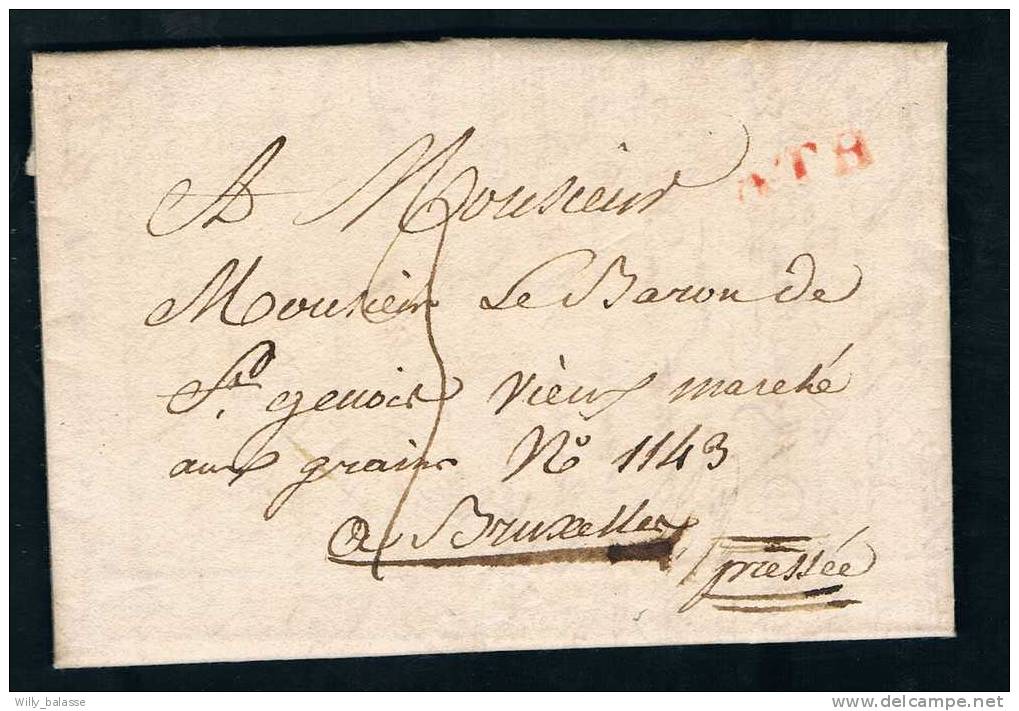 ATH
A Monsieur
Monsieur Le Baron de
St. genois vieux marché
aux grains No 1143
a Bruxelles
pressée
Willy_balasse
www.delcampe.net